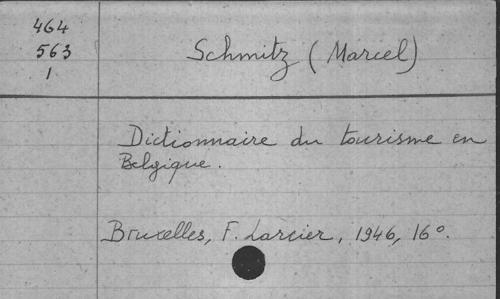 464
563
1
Schmitz (Marcel)
Dictionnaire du tourisme en
Belgique.
Bruxelles, F. Larcier, 1946, 16°.